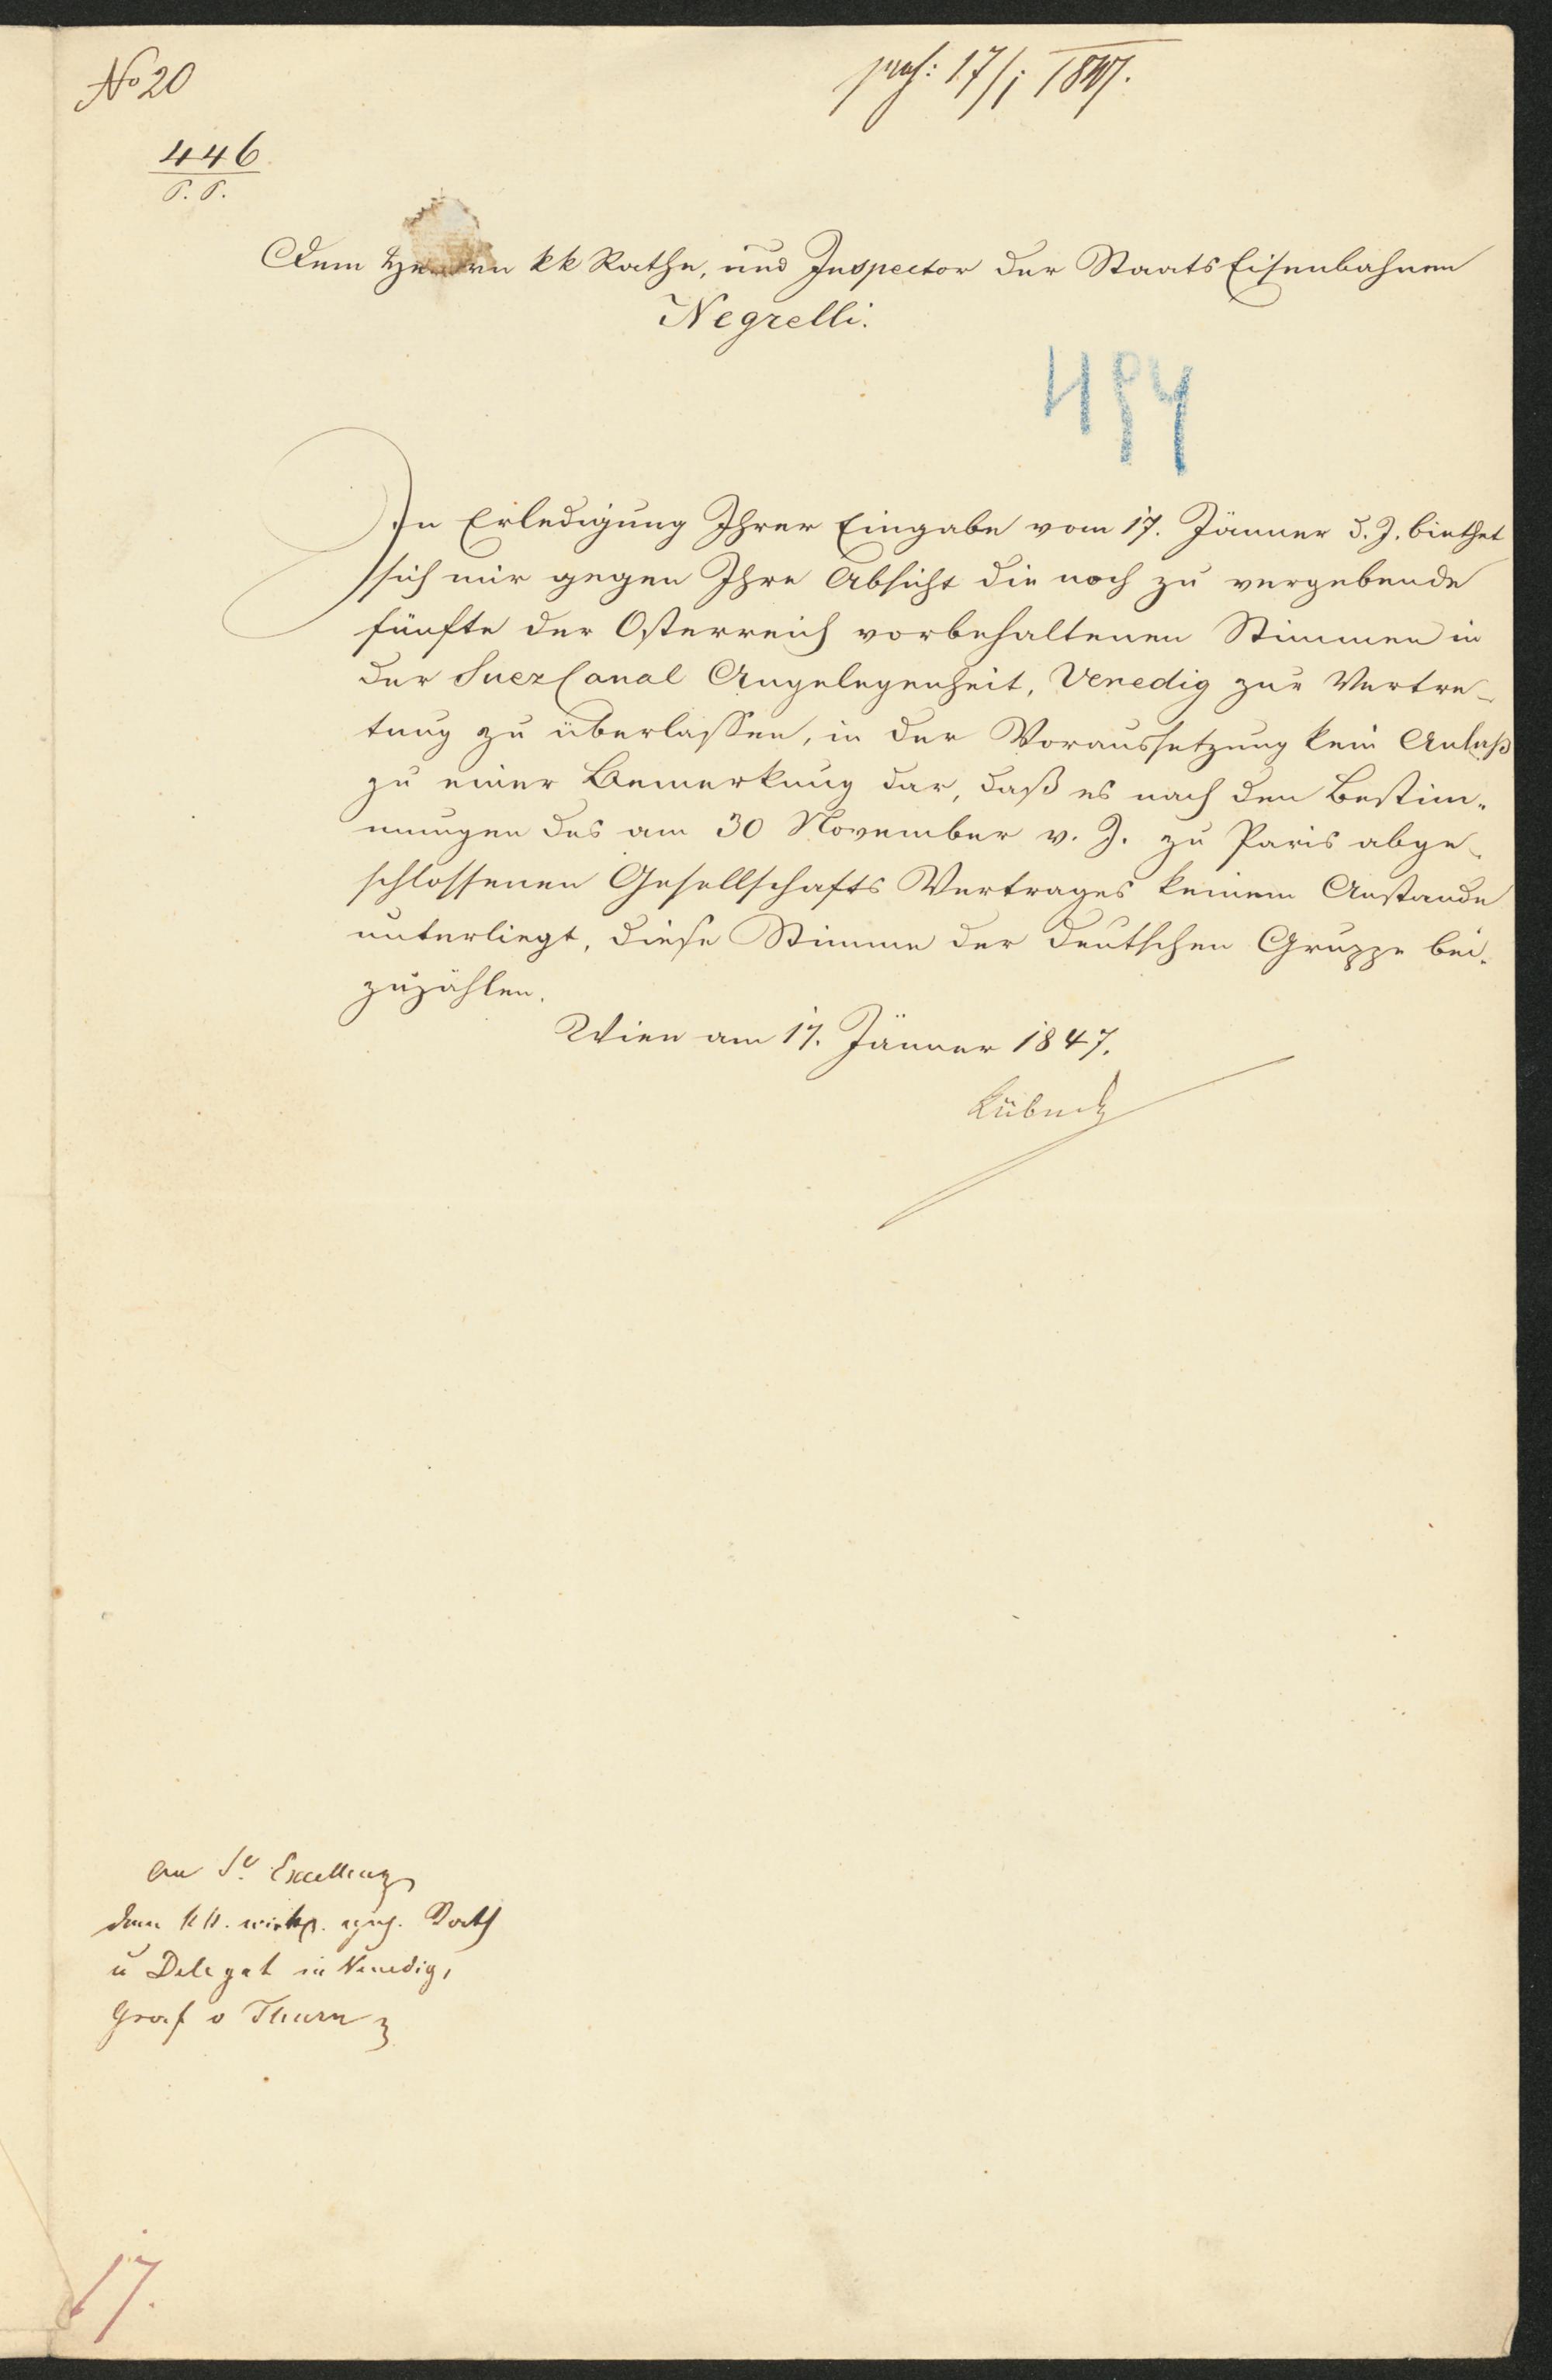 No 20
præs: 17/1 1847.
446
P. P.
Dem Herrn kk Rathe, und Inspector der Staats Eisenbahnen
Negrelli.
494
In Erledigung Ihrer Eingabe vom 17. Jänner d. J. biethet
sich mir gegen Ihre Absicht die noch zu vergebende
fünfte der Osterreich vorbehaltenen Stimmen in
der Suez Canal Angelegenheit, Venedig zur Vertre-
tung zu überlassen, in der Voraussetzung kein Anlaß
zu einer Bemerkung dar, daß es nach den Bestim-
mungen des am 30 November v. J. zu Paris abge-
schlossenen Gesellschafts Vertrages keinem Anstande
unterliegt, diese Stimme der deutschen Gruppe bei-
zuzählen.
Wien am 17. Jänner 1847.
Kübeck
An Se Excellenz
dem kk. wirkl. geh. Rath
u Delegat in Venedig,
Graf v Thurn
17.